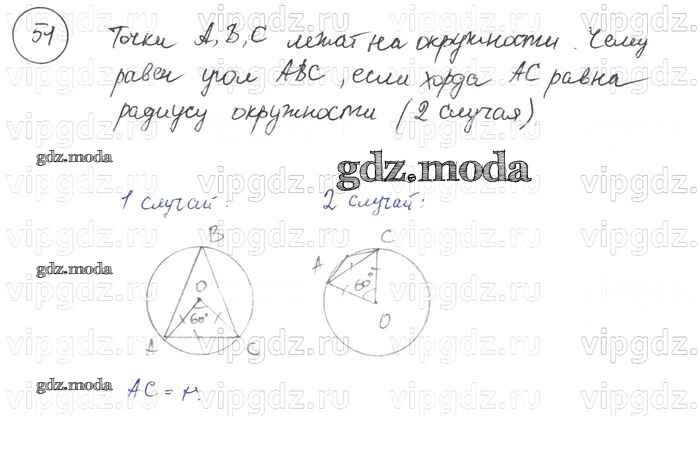 51
Точки A, B, C лежат на окружности. Чему
равен угол ABC, если хорда AC равна
радиусу окружности (2 случая)
gdz.moda
gdz.moda
1 случай:
2 случай:
B
O
60°
A
C
C
A
60°
O
gdz.moda
gdz.moda
AC = r.
vipgdz.ru